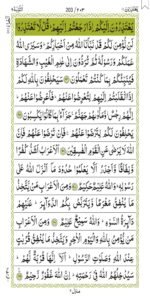 203 / ۲۰۳
يَعْتَذِرُوْنَ اِلَيْكُمْ اِذَا رَجَعْتُمْ اِلَيْهِمْ ؕ قُلْ لَّا تَعْتَذِرُوْا
لَنْ نُّؤْمِنَ لَكُمْ قَدْ نَبَّاَنَا اللّٰهُ مِنْ اَخْبَارِكُمْ ؕ وَسَيَرَى اللّٰهُ
عَمَلَكُمْ وَرَسُوْلُهٗ ثُمَّ تُرَدُّوْنَ اِلٰى عٰلِمِ الْغَيْبِ وَالشَّهَادَةِ
فَيُنَبِّئُكُمْ بِمَا كُنْتُمْ تَعْمَلُوْنَ ۝ سَيَحْلِفُوْنَ بِاللّٰهِ لَكُمْ
اِذَا انْقَلَبْتُمْ اِلَيْهِمْ لِتُعْرِضُوْا عَنْهُمْ ؕ فَاَعْرِضُوْا عَنْهُمْ ؕ
اِنَّهُمْ رِجْسٌ ؗ وَّمَاْوٰىهُمْ جَهَنَّمُ ۚ جَزَآءًۢ بِمَا كَانُوْا يَكْسِبُوْنَ ۝
يَحْلِفُوْنَ لَكُمْ لِتَرْضَوْا عَنْهُمْ ۚ فَاِنْ تَرْضَوْا عَنْهُمْ فَاِنَّ
اللّٰهَ لَا يَرْضٰى عَنِ الْقَوْمِ الْفٰسِقِيْنَ ۝ اَلْاَعْرَابُ اَشَدُّ كُفْرًا
وَّنِفَاقًا وَّاَجْدَرُ اَلَّا يَعْلَمُوْا حُدُوْدَ مَآ اَنْزَلَ اللّٰهُ عَلٰى
رَسُوْلِهٖ ؕ وَاللّٰهُ عَلِيْمٌ حَكِيْمٌ ۝ وَمِنَ الْاَعْرَابِ مَنْ يَّتَّخِذُ
مَا يُنْفِقُ مَغْرَمًا وَّيَتَرَبَّصُ بِكُمُ الدَّوَآئِرَ ؕ عَلَيْهِمْ
دَآئِرَةُ السَّوْءِ ؕ وَاللّٰهُ سَمِيْعٌ عَلِيْمٌ ۝ وَمِنَ الْاَعْرَابِ
مَنْ يُّؤْمِنُ بِاللّٰهِ وَالْيَوْمِ الْاٰخِرِ وَيَتَّخِذُ مَا يُنْفِقُ قُرُبٰتٍ
عِنْدَ اللّٰهِ وَصَلَوٰتِ الرَّسُوْلِ ؕ اَلَآ اِنَّهَا قُرْبَةٌ لَّهُمْ ؕ
سَيُدْخِلُهُمُ اللّٰهُ فِيْ رَحْمَتِهٖ ؕ اِنَّ اللّٰهَ غَفُوْرٌ رَّحِيْمٌ ۝
منزل ۲